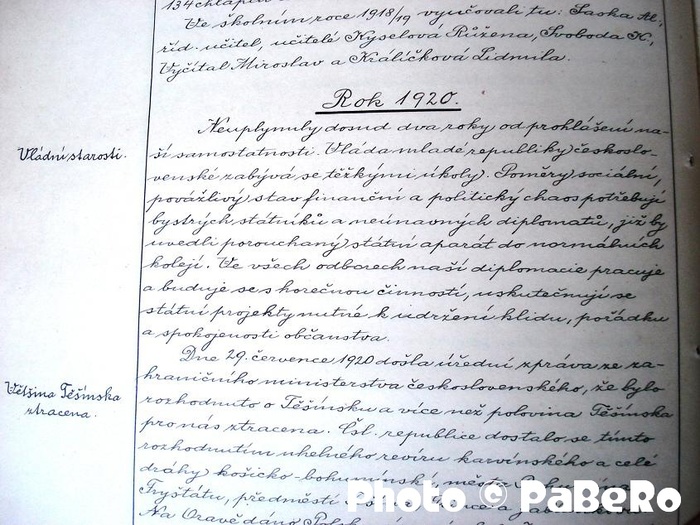 134 chlapců
Ve školním roce 1918/19 vyučovali tu: Saska Al.
říd. učitel, učitelé Kyselová Růžena, Svoboda K.,
Vyčítal Miroslav a Králíčková Lidmila.
Rok 1920.
Neuplynuly dosud dva roky od prohlášení na-
Vládní starosti.
ší samostatnosti. Vláda mladé republiky českoslo-
venské zabývá se těžkými úkoly. Poměry sociální,
povážlivý stav finanční a politický chaos potřebují
bystrých státníků a neúnavných diplomatů, již by
uvedli porouchaný státní aparát do normálních
kolejí. Ve všech odborech naší diplomacie pracuje
a buduje se s horečnou činností, uskutečnují se
státní projekty nutné k udržení klidu, pořádku
a spokojenosti občanstva.
Dne 29. července 1920 došla úřední zpráva ze za-
Většina Těšínska
ztracena.
hraničního ministerstva československého, že bylo
rozhodnuto o Těšínsku a více než polovina Těšínska
pro nás ztracena. Čsl. republice dostalo se tímto
rozhodnutím uhelného revíru karvínského a celé
dráhy košicko-bohumínské, města
Fryštátu, předměstí
Na Oravě dáno
Photo © PaBeRo